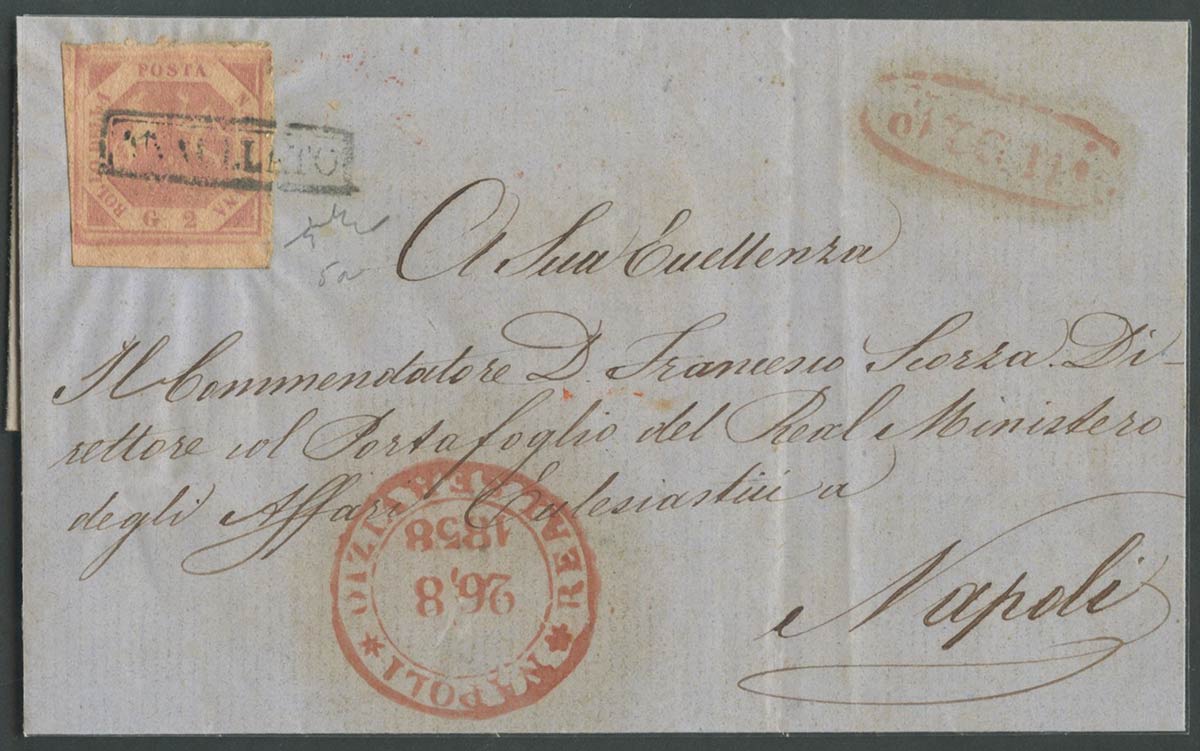 POSTA
NAPOLETANA
BOLLO DELLA
G 2
ANNULLATO
A Sua Eccellenza
Il Commendatore D. Francesco Scorza. Di-
rettore col Portafoglio del Real Ministero
degli Affari Eclesiastici a
Napoli
REAL SERVIZIO
1858
26,8
* NAPOLI *